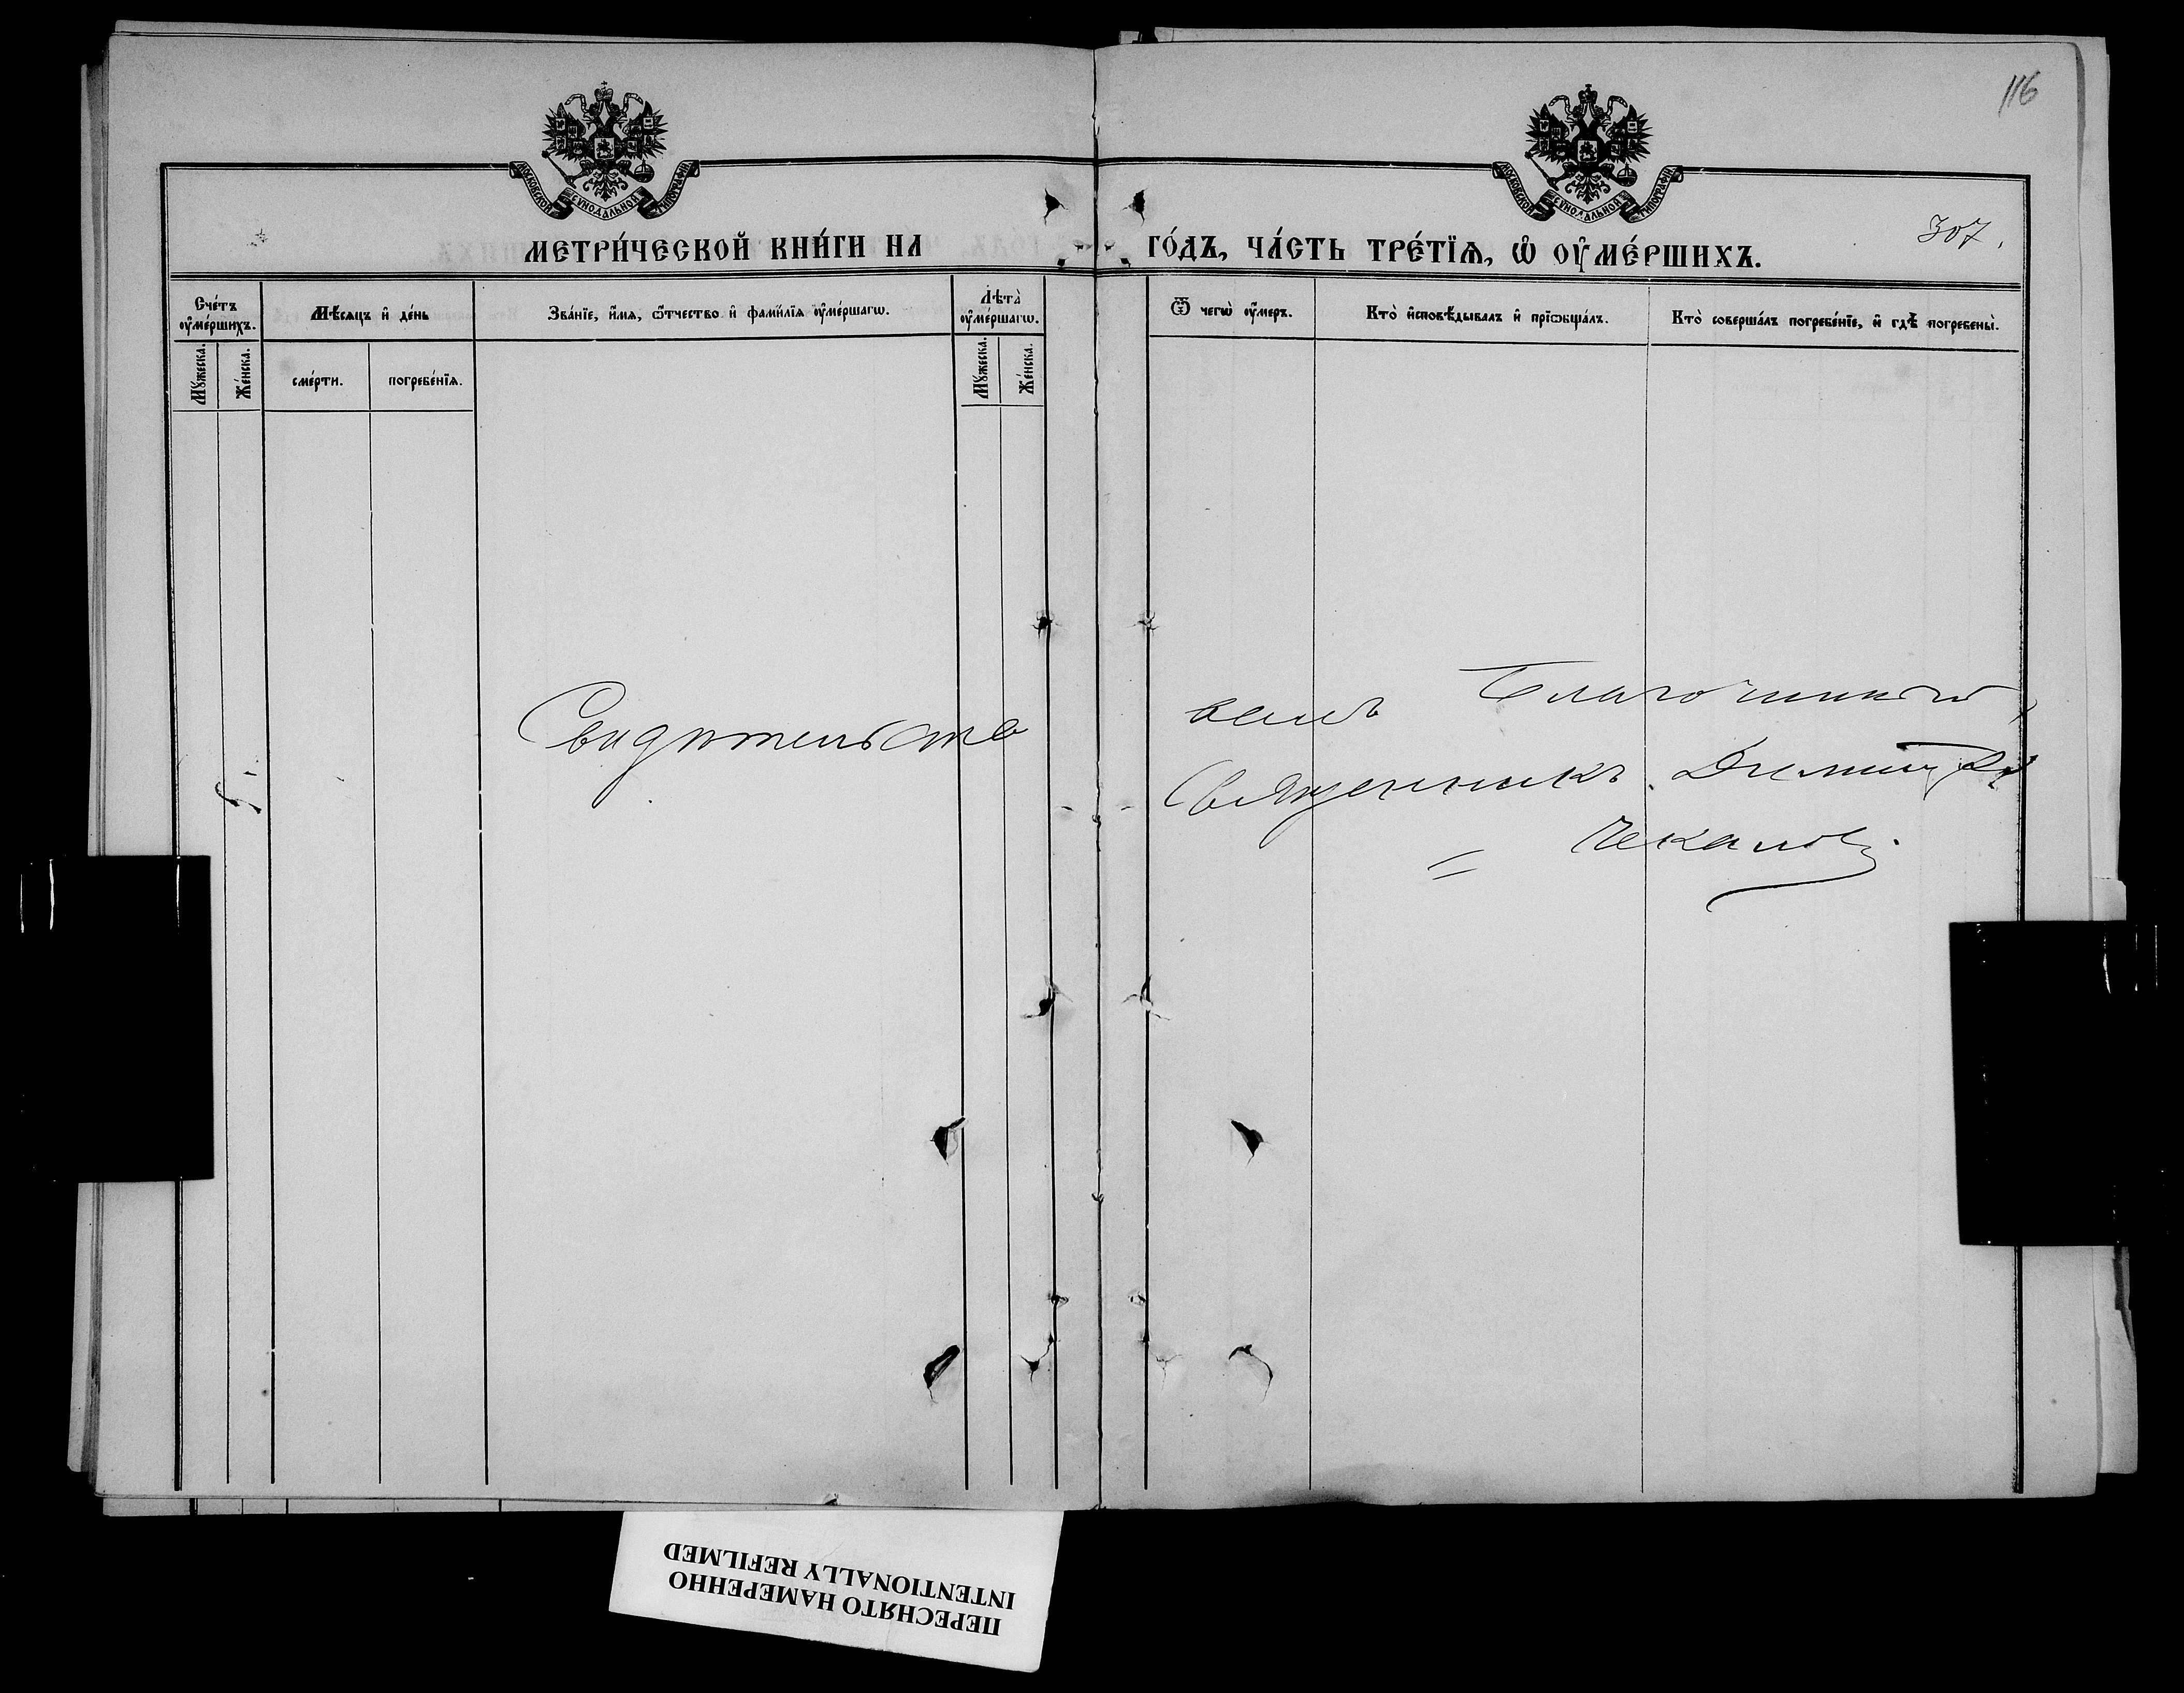 116
МОСКОВСКОЙ СѴНОДАЛЬНОЙ ТИПОГРАФІИ
МОСКОВСКОЙ СѴНОДАЛЬНОЙ ТИПОГРАФІИ
МЕТРИ́ЧЕСКОЙ КНИ́ГИ НА ГО́ДЪ, ЧА́СТЬ ТРЕ́ТЇѦ, Ѽ ОУ҆МЕ́РШИХЪ.
307.
Сче́тъ оу҆ме́ршихъ.
Мѣ́сяцъ и҆ де́нь
Зва́нїе, и҆́мѧ, ѻ҆́тчество и҆ фами́лїѧ оу҆ме́ршагѡ.
Лѣта̀ оу҆ме́ршагѡ.
Ѿ чегѡ̀ оу҆́меръ.
Кто̀ и҆сповѣ́дывалъ и҆ прїѡбща́лъ.
Кто̀ соверша́лъ погребе́нїе, и҆ гдѣ̀ погребены̀.
Мꙋ́жеска.
Же́нска.
сме́рти.
погребе́нїѧ.
Мꙋ́жеска.
Же́нска.
Свидѣтельствовалъ Благочинный,
Священникъ Димитрій
Чекаловъ.
ПЕРЕСНЯТО НАМЕРЕННО
INTENTIONALLY REFILMED